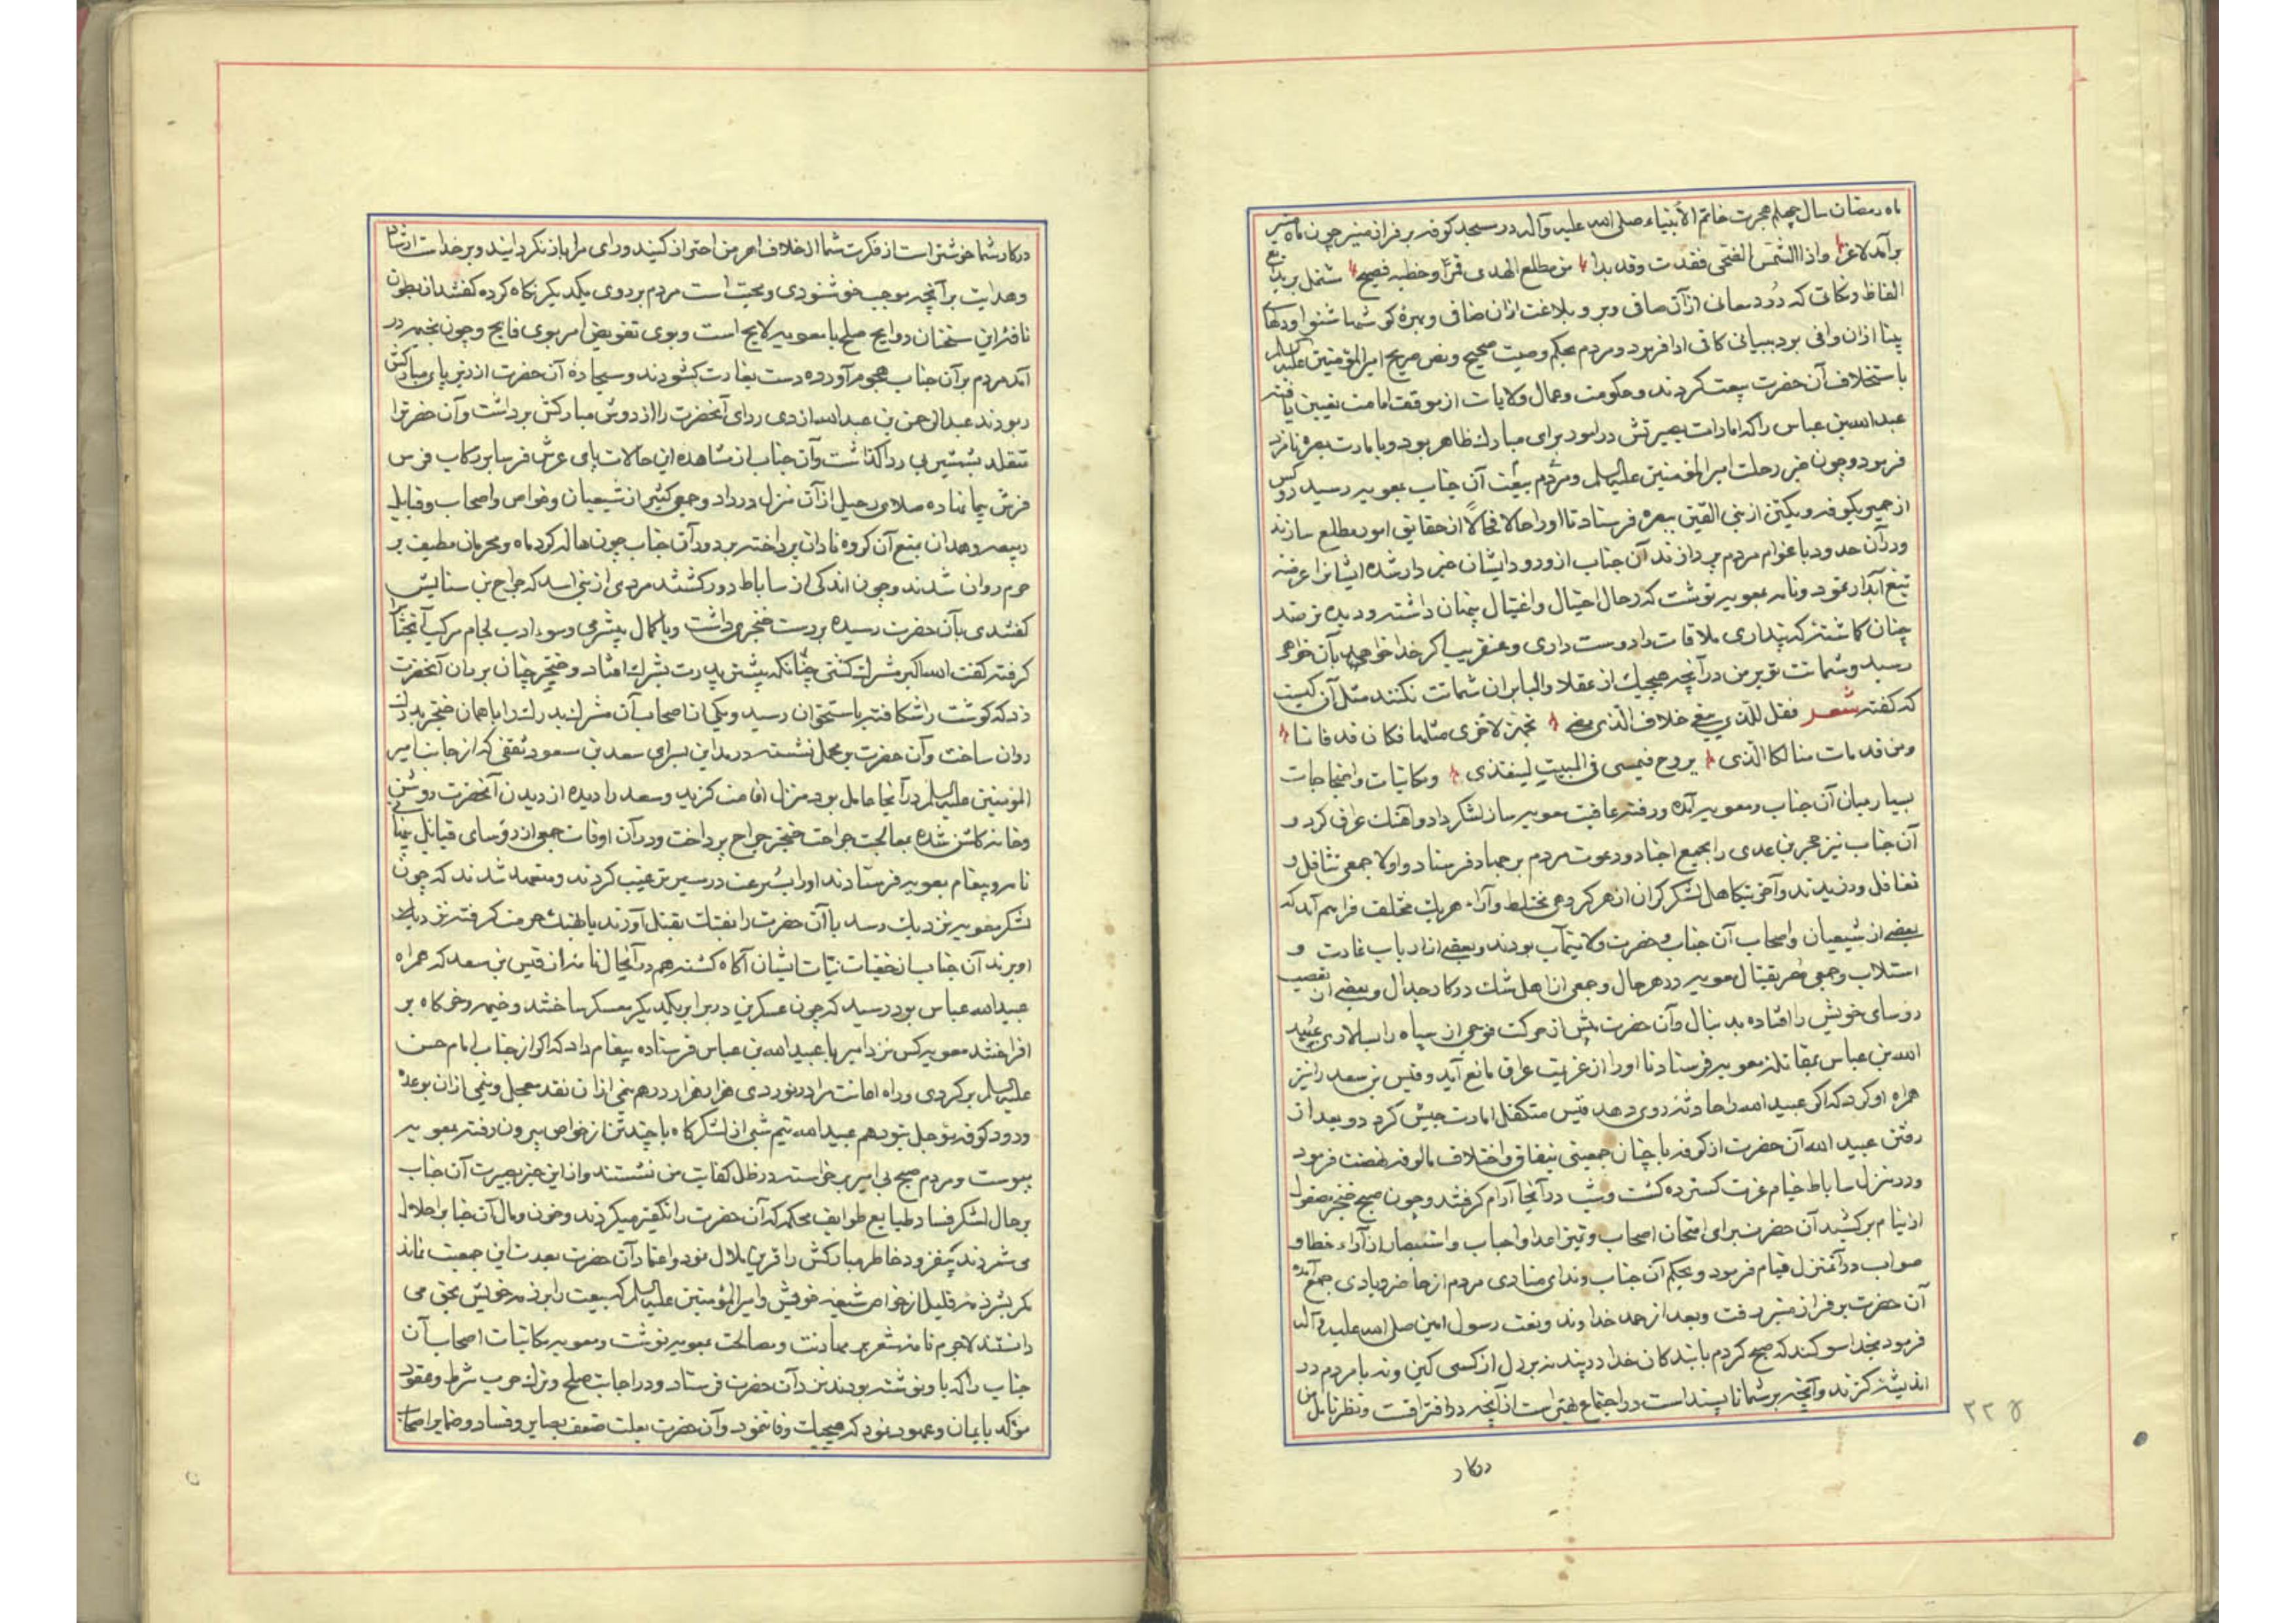 ماه رمضان سال چهلم هجرت خاتم الأنبیاء صلی الله علیه وآله در مسجد کوفه بر فراز منبر چون ماه منیر
برآمد لاغرا واذا الشمس الضحی فقدت وقد بدا من مطلع الهدی قمرا وخطبه فصیح مشتمل بر بدایع
الفاظ ونکاتی که درد معانی ازآن صافی وبر وبلاغت ازان ضافی وبهرۀ کوشها شنوا ودلهای
بینا ازان وافی بود ببیانی کافی ادا فرمود ومردم بحکم وصیت صحیح ونص صریح امیر المؤمنین علیه السلم
باستخلاف آن حضرت بیعت کردند وحکومت وعمال ولایات از موقف امامت تعیین یافته
عبدالله بن عباس را که امارات بصیرتش در امور برای مبارك ظاهر بود وبا مارت بصره نامزد
فرمود وچون خبر رحلت امیر المؤمنین علیه السلم ومردم ببیعت آن جناب بمعویه رسید دو کس
از حمیر بکوفه ویکتن از بنی القین ببصره فرستاد تا اورا حالا فحالا از حقایق امور مطلع سازند
ودرآن حدود باغوام مردم پردازند آن جناب از ورود ایشان خبر دار شده ایشانرا عرضه
تیغ آبدار نمود ونامه بمعویه نوشت که رجال احتیال واغتیال پنهان داشته ودیده بر صد
چنان کماشتۀ که پنداری ملاقات را دوست داری وعنقریب اکر خدا خواهد بآن خواهی
رسید وشماتت تو بر من درآنچه هیچیك از عقلا والبا بران شماتت نکنند مثل آن کیست
که کفته شعر فقل للذی یبغی خلاف الذی مضی تجهز لاخری مثلها فکان قد فاننا
ومن قد مات منا لکا الذی یروح فیمسی فی المبیت لیغتذی ومکاتبات واحتجاجات
بسیار میان آن جناب ومعویه آمد ورفته عاقبت معویه ساز لشکر داد وآهنك عراق کرد و
آن جناب نیز حجر بن عدی را بجمیع اجناد ودعوت مردم بر جهاد فرستاد واولا جمعی تثاقل و
تغافل ورزیدند وآخر بتکاهل لشکر کران از هر کروهی مختلط وآراء هریك مختلف فراهم آمد که
بعضی از شیعیان واصحاب آن جناب وحضرت ولایتمآب بودند وبعضی از ارباب غارت و
استلاب وجمعی مقر بقتال معویه در هر حال وجمعی از اهل شك در کار جدال وبعضی از تعصب
روسای خویش را افتاده بدنبال وآن حضرت پیش از حرکت فوجی از سپاه را بسالاری عبید
الله بن عباس بمقاتله معویه فرستاد تا اورا از عزیمت عراق مانع آید وقیس بن سعد را نیز
همراه او کرد که اکر عبید الله را حادثه روی دهد قیس متکفل امارت جیش کردد وبعد از
رفتن عبید الله آن حضرت از کوفه با چنان جمعیتی بنفاق واختلاف مالوفه نهضت فرمود
ودر منزل ساباط خیام عزت کسترده کشت وشب درآنجا آرام کرفتند وچون صبح خنجر مصقول
از نیام برکشید آن حضرت برای امتحان اصحاب وتمیز اعدا واحباب واستبصار از آراء خطا و
صواب درآنمنزل قیام فرمود وبحکم آن جناب وندای منادی مردم از حاضر وبادی جمع آمده
آن حضرت بر فراز منبر رفت وبعد از حمد خداوند ونعت رسول امین صلی الله علیه وآله
فرمود بخدا سوکند که صبح کردم با بندکان خدا در پند نه بر دل از کسی کین ونه با مردم در
اندیشۀ کزند وآنچه بر شما ناپسند است در اجتماع بهتر است ازآنچه در افتراقت ونظر تأمل من
در کار
۲۲۵
در کار شما خوشتر است از فکرت شما از خلاف امر من احتراز کنید ورای مرا باز نکردانید وبر خداست ارشاد
وهدایت برآنچه موجب خوشنودی ومحبت است مردم بروی یکدیکر نکاه کرده کفتند از بطون
نافۀ این سخنان روایح صلح با معویه لایح است وبوی تفویض امر بوی فایح وچون بخیمه در
آمد مردم برآن جناب هجوم آورده دست بغارت کشودند وسجادۀ آن حضرت از زیر پای مبارکش
ربودند عبدالرحمن بن عبدالله ازدی ردای آنحضرت را از دوش مبارکش برداشت وآن حضرترا
متقلد بشمشیر بی ردا کذاشت وآن جناب از مشاهده این حالات پای عرش فرسا بر رکاب فرس
فرش پیما نهاده صلای رحیل ازآن منزل درداد وجمع کثیر از شیعیان وخواص واصحاب وقبایل
ربیعه وهمدان بمنع آن کروه نادان پرداخته بر دور آن جناب چون هاله کرد ماه ومحرمان مطیف بر
حرم روان شدند وچون اندکی از ساباط دور کشتند مردی از بنی اسد که جراح بن سنانش
کفتندی بآن حضرت رسیده بر دست خنجری داشت وبا کمال بیشرمی وسوء ادب لجام مرکب آنجنابرا
کرفته کفت الله اکبر مشرك کشتی چنانکه پیشتر پدرت بشرك افتاد وخنجر چنان بر ران آنحضرت
زد که کوشت را شکافته باستخوان رسید ویکی از اصحاب آن مشرك بد رك را با همان خنجر بدرك
روان ساخت وآن حضرت بر محمل نشسته در مداین بسرای سعد بن مسعود ثقفی که از جانب امیر
المؤمنین علیه السلم درآنجا عامل بود منزل اقامت کزید وسعد را دیده از دیدن آنحضرت روشن
وخانه کلشن شده بمعالجت جراحت خنجر جراح پرداخت ودرآن اوقات جمعی از رؤسای قبایل پنهانی
نامه وپیغام بمعویه فرستادند اورا بسرعت در سیر ترغیب کردند ومتعهد شدند که چون
لشکر معویه نزدیك رسد یا آن حضرت را بفتك بقتل آورند یا بهتك حرمت کرفته نزدیك
او برند آن جناب از خفیات نیات ایشان آکاه کشته هم درآنحال نامه از قیس بن سعد که همراه
عبیدالله عباس بود رسید که چون عسکرین در برابر یکدیکر معسکر ساختند وخیمه وخرکاه بر
افراختند معویه کس نزد امیر ما عبید الله بن عباس فرستاده پیغام داد که اکر از جناب امام حسن
علیه السلم برکردی وراه اهانت مرا در نوردی هزار هزار درهم نیمی ازان نقد معجل ونیمی ازان بوعده
ورود کوفه مؤجل بتو دهم عبید الله نیم شبی از لشکرکاه با چند تن از خواص بیرون رفته بمعویه
پیوست ومردم صبح بی امیر برخواسته در ظل کفایت من نشستند واز این خبر بصیرت آن جناب
بر حال لشکر وفساد طبایع طوایف محکمه که آن حضرت را تکفیر میکردند وخون ومال آن جنابرا حلال
می شمردند بیفزود وخاطر مبارکش را قرین ملال نمود واعتماد آن حضرت بعدت این جمعیت نماند
مکر بشرذمۀ قلیل از خواص شیعه خویش وامیر المؤمنین علیه السلم که بیعت را بر ذمه خویش بحق می
دانستند لاجرم نامه مشعر بر مهادنت ومصالحت بمعویه نوشت ومعویه مکاتبات اصحاب آن
جناب را که باو نوشته بودند نزد آن حضرت فرستاد ودر اجابت صلح وترك حرب شرط وعقود
مؤکد بایمان وعهود نمود که بهیچیك وفا ننمود وآن حضرت بعلت ضعف بصایر وفساد وضمایر اصحاب